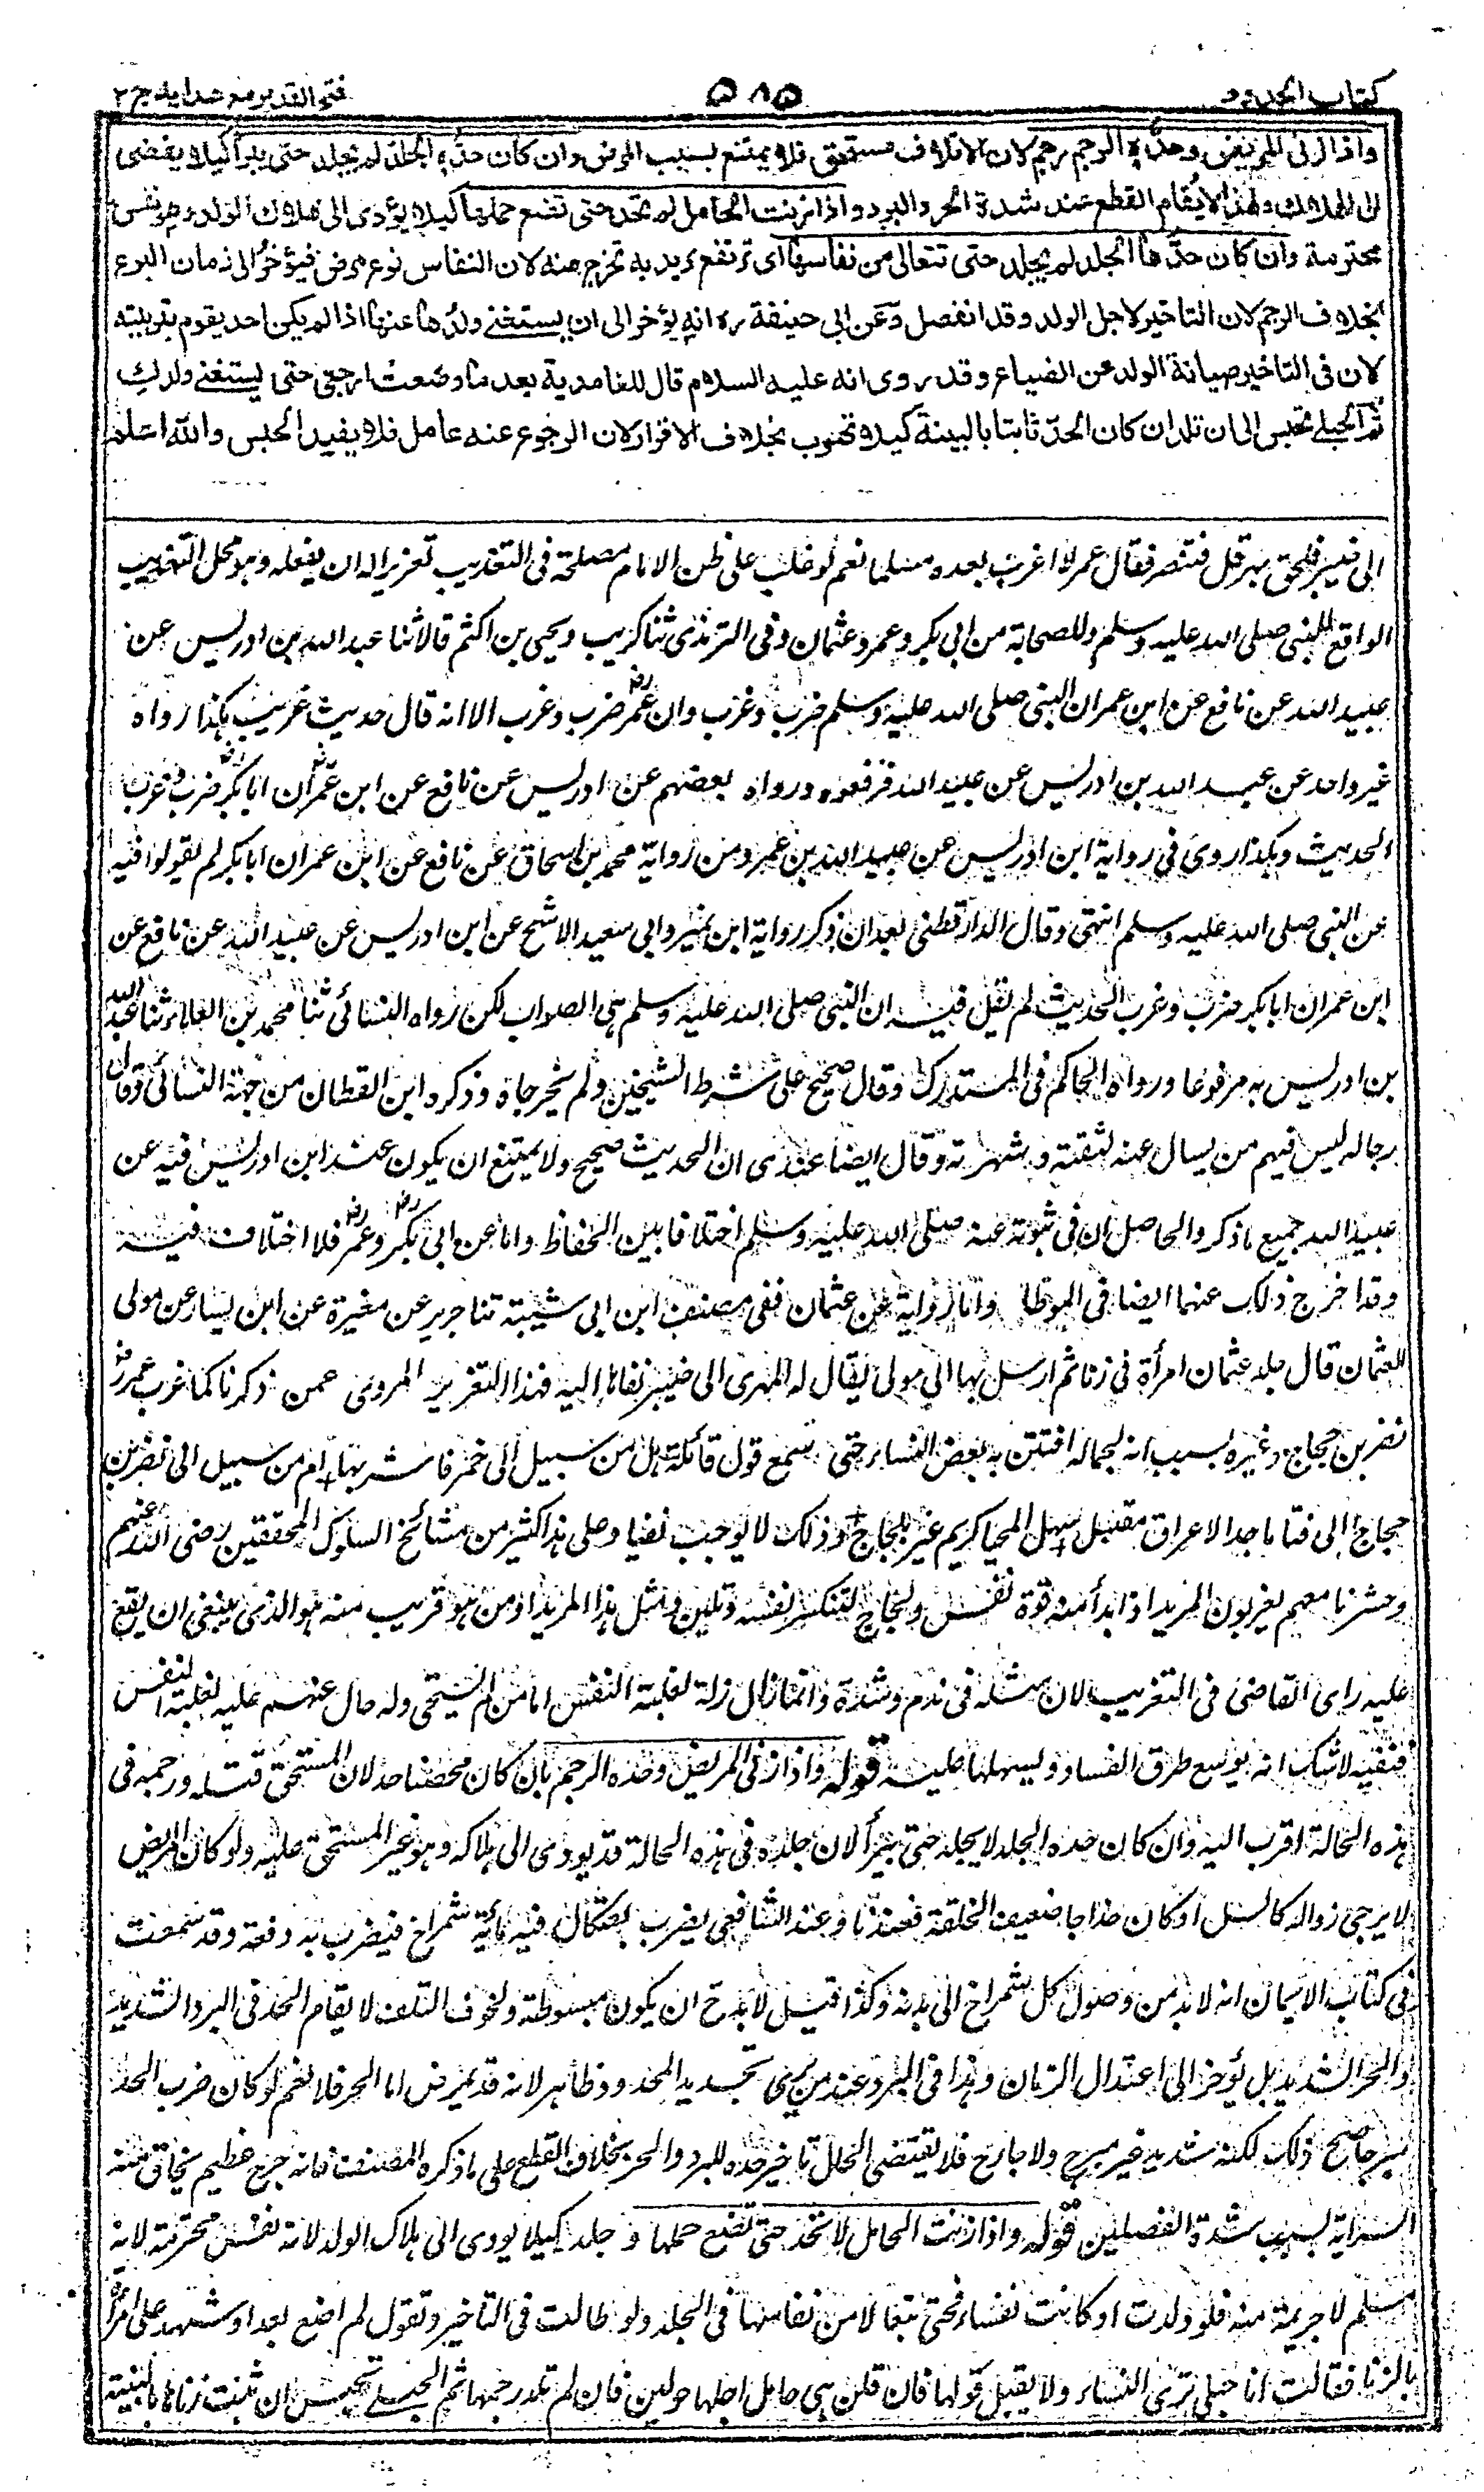 كتاب الحدود
٥٨٥
فتح القدير مع هدايه ج ٢
واذا زنى المريض وحدّه الرجم رجم لان الاتلاف مستحق فلا يمتنع بسبب المرض وان كان حدّه الجلد لم يجلد حتى يبرأ كيلا يفضى
الى الهلاك ولهذا لا يُقام القطع عند شدة الحر والبرد واذا زنت الحامل لم تحد حتى تضع حملها كيلا يؤدى الى هلاك الولد وهو نفس
محترمة وان كان حدّها الجلد لم يجلد حتى تتعالى من نفاسها اى ترتفع يريد به تخرج منه لان النفاس نوع مرض فيؤخر الى زمان البرء
بخلاف الرجم لان التاخير لاجل الولد وقد انفصل وعن ابى حنيفة ره انه يؤخر الى ان يستغنى ولدها عنها اذا لم يكن احد يقوم بتربيته
لان فى التاخير صيانة الولد عن الضياع وقد روى انه عليه السلام قال للغامدية بعد ما وضعت ارجعى حتى يستغنى ولدك
ثم الحبلى تحبس الى ان تلد ان كان الحدّ ثابتا بالبينة كيلا تهرب بخلاف الاقرار لان الرجوع عنه عامل فلا يفيد الحبس والله اعلم
الى خيبر فلحق بهرقل فتنصر فقال عمر لا اغرب بعده مسلما نعم لو غلب على ظن الامام مصلحة فى التغريب تعزيرا له ان يفعله وهو محمل التغريب
الواقع للنبى صلى الله عليه وسلم وللصحابة من ابى بكر وعمر وعثمان وفى الترمذى ثنا كريب ويحيى بن اكثم قالا ثنا عبد الله بن ادريس عن
عبيد الله عن نافع عن ابن عمر ان النبى صلى الله عليه وسلم ضرب وغرب وان عمر رض ضرب وغرب الا انه قال حديث غريب هكذا رواه
غير واحد عن عبد الله بن ادريس عن عبيد الله فرفعوه ورواه بعضهم عن ادريس عن نافع عن ابن عمر رض ان ابا بكر رض ضرب وغرب
الحديث وهكذا روى فى رواية ابن ادريس عن عبيد الله بن عمر ومن رواية محمد بن اسحاق عن نافع عن ابن عمر ان ابا بكر لم يقولوا فيه
عن النبى صلى الله عليه وسلم انتهى وقال الدارقطنى بعد ان ذكر رواية ابن نمير وابى سعيد الاشج عن ابن ادريس عن عبيد الله عن نافع عن
ابن عمر ان ابا بكر ضرب وغرب الحديث لم يقل فيه ان النبى صلى الله عليه وسلم هى الصواب لكن رواه النسائى ثنا محمد بن العلاء ثنا عبد الله
بن ادريس به مرفوعا ورواه الحاكم فى المستدرك وقال صحيح على شرط الشيخين ولم يخرجاه وذكره ابن القطان من جهة النسائى وقال
رجاله ليس فيهم من يسال عنه لثقته وشهرته وقال ايضا عندى ان الحديث صحيح ولا يمتنع ان يكون عند ابن ادريس فيه عن
عبيد الله جميع ما ذكر والحاصل ان فى ثبوته عنه صلى الله عليه وسلم اختلافا بين الحفاظ واما عن ابى بكر رض وعمر رض فلا اختلاف فيه
وقد اخرج ذلك عنهما ايضا فى الموطا واما الرواية عن عثمان ففى مصنف ابن ابى شيبة ثنا جرير عن مغيرة عن ابن يسار عن مولى
لعثمان قال جلد عثمان امرأة فى زنا ثم ارسل بها الى مولى يقال له المهرى الى خيبر نفاها اليه فهذا التغريب المروى عمن ذكرنا كما غرب عمر رض
نضر بن حجاج وغيره بسبب انه لجماله افتتن به بعض النساء حتى سمع قول قائلة هل من سبيل الى خمر فاشربها ام من سبيل الى نضر بن
حجاج الى فتا ماجد الاعراق مقتبل سهل المحيا كريم غير ملجاج وذلك لا يوجب نفيا وعلى هذا كثير من مشائخ السلوك المحققين رضى الله عنهم
وحشرنا معهم يغربون المريد اذا بدأ منه قوة نفس ولجاج لتنكسر نفسه وتلين ومثل هذا المريد او من هو قريب منه هو الذى ينبغى ان يقع
عليه راى القاضى فى التغريب لان مثله فى ندم وشدة وانما زل زلة لغلبة النفس اما من لم يستحى وله حال عنهم عليه لغلبة النفس
فنفيه لا شك انه يوسع طرق الفساد ويسهلها عليه قوله واذا زنى المريض وحده الرجم بان كان محصنا حد لان المستحق قتله ورجمه فى
هذه الحالة اقرب اليه وان كان حده الجلد لا يجلد حتى يبرأ لان جلده فى هذه الحالة قد يودى الى هلاكه وهو غير المستحق عليه ولو كان المرض
لا يرجى زواله كالسل او كان خداجا ضعيف الخلقة فعندنا وعند الشافعى يضرب بعثكال فيه مائة شمراخ فيضرب به دفعة وقد سمعت
فى كتاب الايمان انه لا بد من وصول كل شمراخ الى بدنه وكذا قيل لا بد ح ان يكون مبسوطة ولخوف التلف لا يقام الحد فى البرد الشديد
والحر الشديد بل يؤخر الى اعتدال الزمان وهذا فى البرد عند من يرى تجريد المحدود ظاهر لانه قد يمرض اما الحر فلا نعم لو كان ضرب الحد
مبرحا صح ذلك لكنه شديد غير مبرح ولا جارح فلا يقتضى الحال تاخير حده للبرد والحر بخلاف القطع على ما ذكره المصنف فانه جرح عظيم يخاف منه
السراية بسبب شدة الفصلين قوله واذا زنت الحامل لا تحد حتى تضع حملها و جلد كيلا يودى الى هلاك الولد لانه نفس محترمة لانه
مسلم لا جريمة منه فلو ولدت او كانت نفساء فحتى تتعالا من نفاسها فى الجلد ولو طالت فى التاخير وتقول لم اضع بعد او شهد على امرأة
بالزنا فقالت انا حبلى ترى النساء ولا يقبل قولها فان قلن هى حامل اجلها حولين فان لم تلد رجمها ثم الحبلى تحبس ان ثبت زناها بالبينة